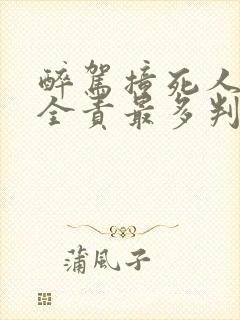 醉駕撞死人
全責最多判
蒲風子